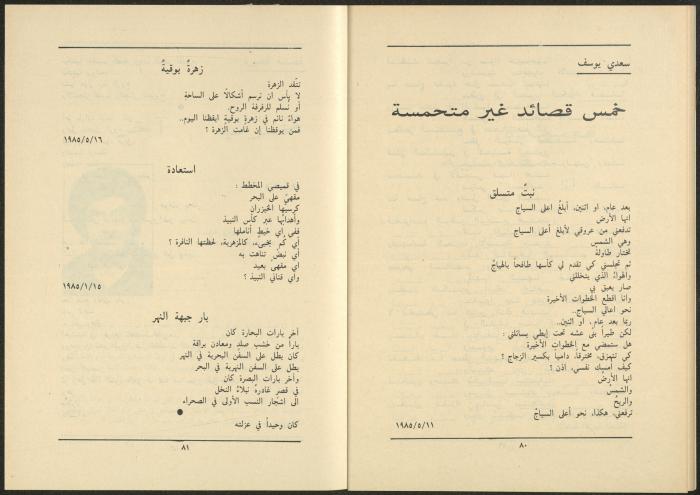 سعدي يوسف
خمس قصائد غير متحمسة
نبتٌ متسلق
بعد عام، او اثنين، أبلغُ اعلى السياج
انها الأرضُ
تدفعني من عروقي لأبلغ أعلى السياج
وهي الشمس
تختار طاولةً
ثم تجلسني كي تقدم لي كأسها طافحاً بالهياج
والهواءُ الذي يتخللني
صار يعبق بي
وانا اقطع الخطوات الأخيرة
نحو اعالي السياج..
ربما بعد عام، او اثنين..
لكن طيراً بنى عشه تحت إبطي يسائلني :
هل ستمضي مع الخطوات الأخيرة
كي تتمزق، مخترقاً، دامياً بكسير الزجاج ؟
كيف أمسك نفسي، اذن ؟
انها الأرضُ
والشمسُ
والريحُ
ترفعني، هكذا، نحو أعلى السياجْ
١٩٨٥/٥/١١
٨٠
زهرةٌ بوقيةٌ
تتّقد الزهرة
لا بأس ان نرسم أشكالًا على الساحةِ
أو نُسلم للرفرفة الروح.
هواءٌ نائم في زهرةٍ بوقيةٍ ايقظنا اليوم..
فمن يوقظنا إن غامت الزهرة ؟
١٩٨٥/٥/١٦
استعادة
في قميصي المخطط :
مقهىً على البحر
كرسيّها الخيزران
وأهدابُها عبر كأس النبيذ
ففي اي خيطٍ أناملها
أي كمٍّ يخبىء، كالمزهرية، لحظتها النافرة ؟
أي نبضٍ تناهت به
أي مقهىً بعيد
وأي قناني النبيذ ؟
١٩٨٥/١/١٥
بار جبهة النهر
آخر بارات البحارة كان
باراً من خشب صلدٍ ومعادن براقة
كان يطل على السفن البحرية في النهر
يطل على السفن النهرية في البحر
وآخر بارات البصرة كان
في قصرٍ غادرهُ نبلاءُ النخل
الى اشجار النسب الأولى في الصحراء
كان وحيداً في عزلته
٨١